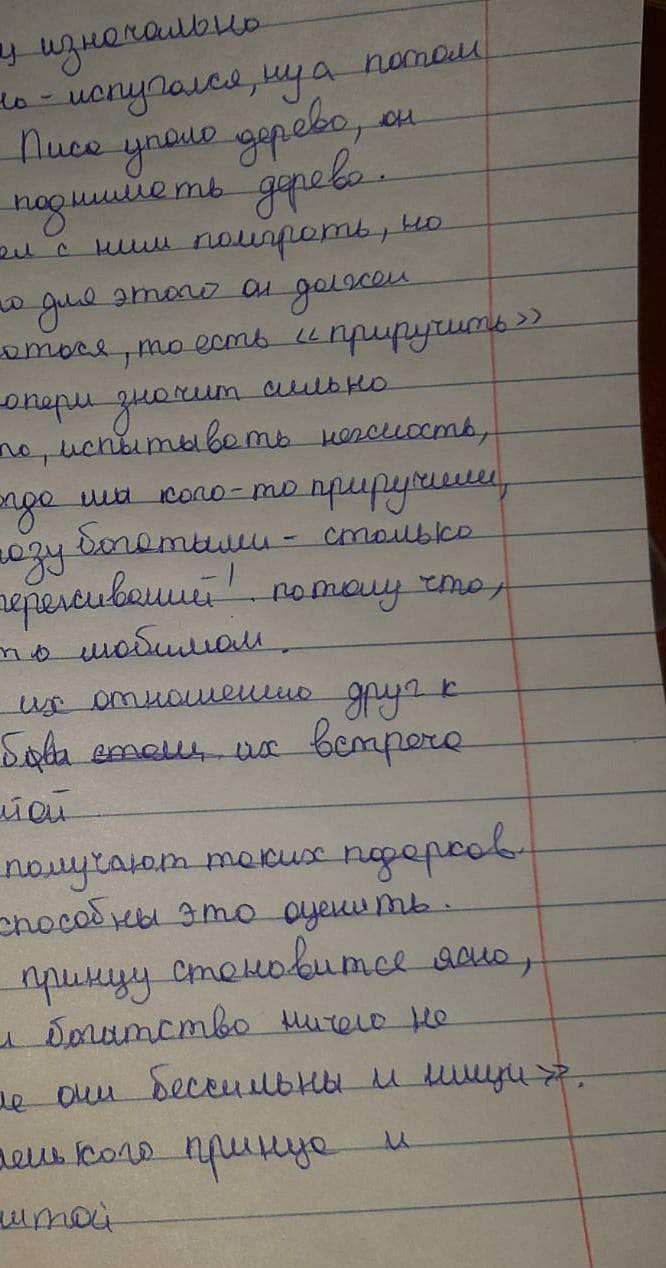 у изначально
но - испугался, ну а потом
Лиса упало дерево, он
поднимать дерево.
ел с ним поиграть, но
то для этого он должен
оться, то есть «приручить»
оперь значит сильно
то, испытывать нежность,
огда мы кого-то приручили,
разу богатыми - столько
переживаний! потому что,
то любимом.
их отношению друг к
бова их встреча
той
получают таких подарков
способны это оценить.
принцу становится ясно,
и богатство ничего не
ле они бессильны и нищи».
ленького принца и
штой